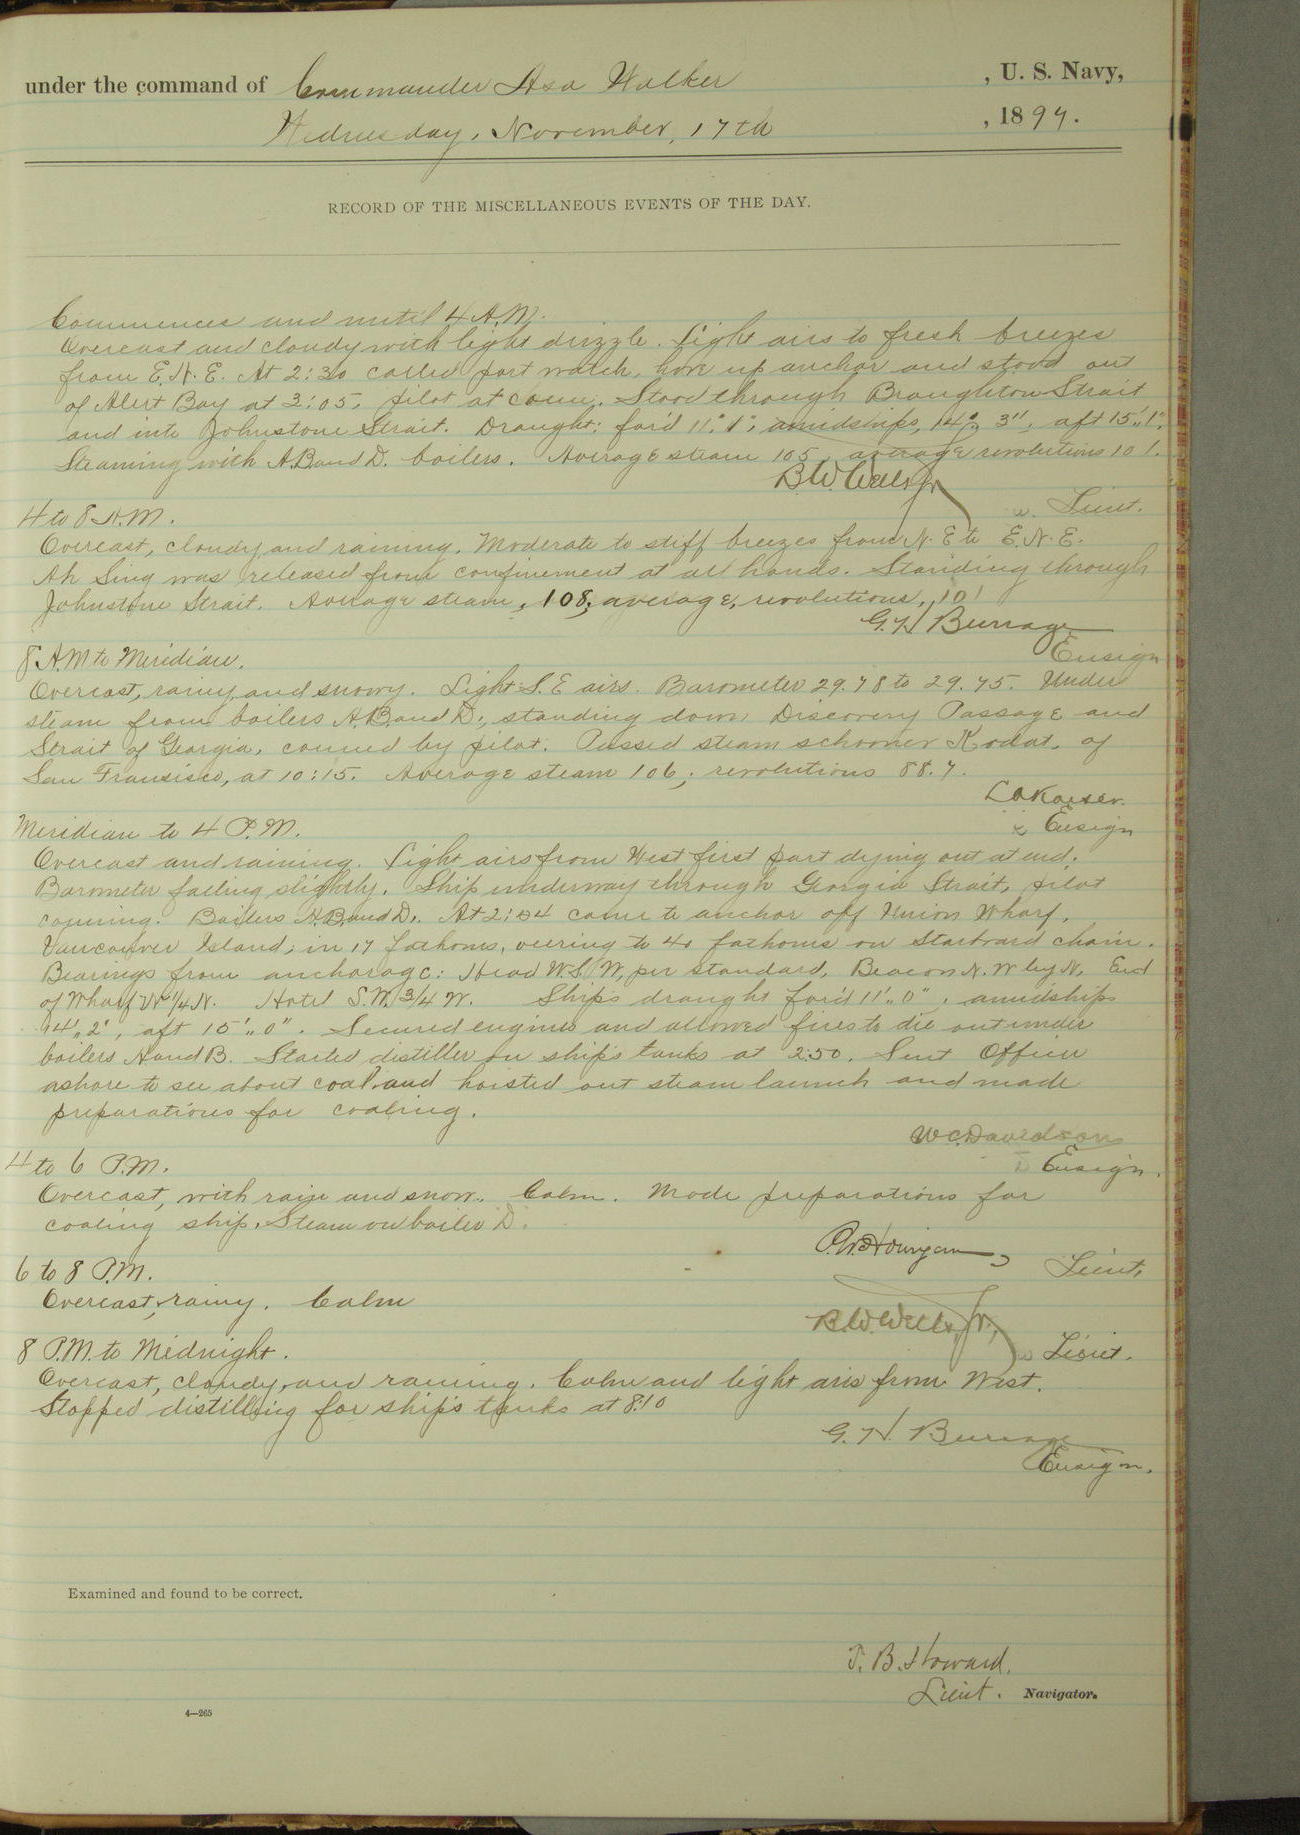 under the command of Commander Asa Walker , U. S. Navy,
Wednesday, November, 17th , 1897.
RECORD OF THE MISCELLANEOUS EVENTS OF THE DAY.
Commences and until 4 A.M.
Overcast and cloudy with light drizzle. Light airs to fresh breezes
from E.N.E. At 2:30 called port watch, hove up anchor and stood out
of Alert Bay at 3:05, pilot at conn. Stood through Broughton Strait
and into Johnstone Strait. Draught: for'd 11', 1", amidships, 14', 3", aft 15', 1".
Steaming with A.B and D. boilers. Average steam 105, average revolutions 101.
B.W. Wells Jr
Lieut.
4 to 8 A.M.
Overcast, cloudy and raining. Moderate to stiff breezes from N.E to E.N.E.
Ah Sing was released from confinement at all hands. Standing through
Johnstone Strait. Average steam, 108, average, revolutions, 101
G.H Burrage
Ensign
8 A.M to Meridian.
Overcast, rainy, and snowy. Light S.E airs. Barometer 29.78 to 29.75. Under
steam from boilers A.B. and D., standing down Discovery Passage and
Strait of Georgia, conned by pilot. Passed steam schooner Kodat, of
San Fransisco, at 10:15. Average steam 106; revolutions 88.7.
L A Kaiser.
Ensign
Meridian to 4 P.M.
Overcast and raining. Light airs from West first part dying out at end.
Barometer falling slightly. Ship underway through Georgia Strait, pilot
conning. Boilers A.B. and D. At 2:04 came to anchor off Union Wharf,
Vancouver Island, in 17 fathoms, veering to 40 fathoms on Starboard chain.
Bearings from anchorage: Head W.S.W, per standard, Beacon N.W by N, End
of Wharf W 1/4 N. Hotel S.W. 3/4 W. Ships draught for'd 11',, 0", amidships
14',, 2", aft 15',, 0". Secured engines and allowed fires to die out under
boilers A and B. Started distiller on ship's tanks at 2:50. Sent Officer
ashore to see about coal and hoisted out steam launch and made
preparations for coaling.
W C. Davidson
Ensign.
4 to 6 P.M.
Overcast, with rain and snow. Calm. Made preparations for
coaling ship. Steam on boiler D.
P.W. Hourigan
Lieut,
6 to 8 P.M.
Overcast, rainy. Calm
B.W. Wells, Jr.,
Lieut.
8 P.M. to Midnight.
Overcast, cloudy, and raining. Calm and light airs from West.
Stopped distilling for ship's tanks at 8:10
G. H. Burrage
Ensign.
Examined and found to be correct.
T. B. Howard.
Lieut. Navigator.
4—265